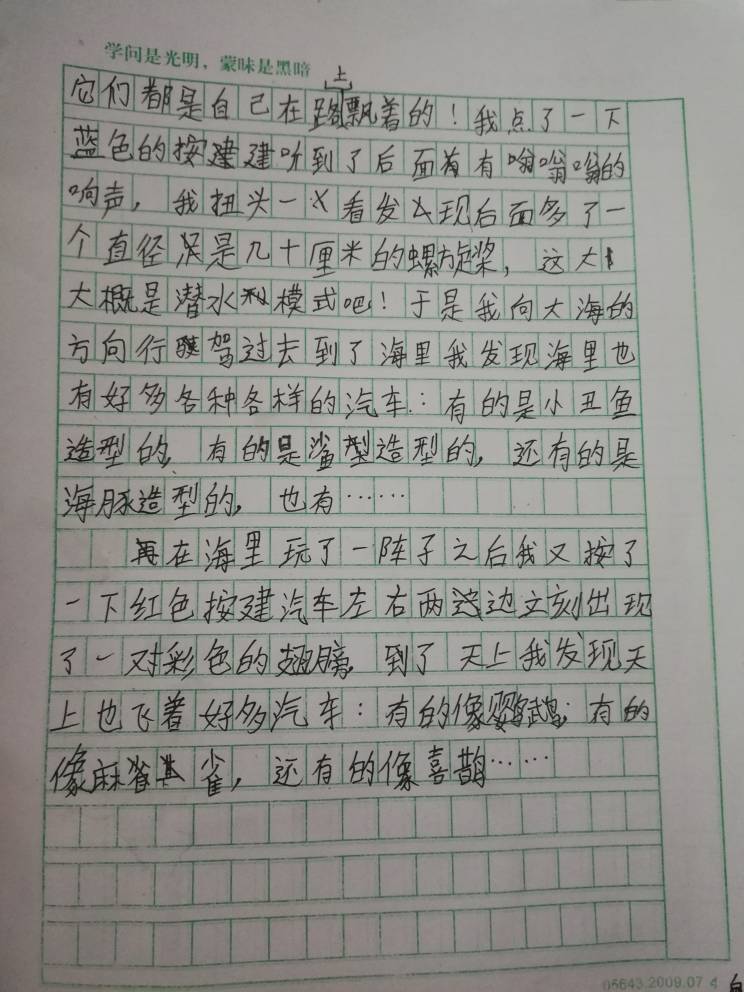 学问是光明，蒙昧是黑暗
上
它们都是自己在路飘着的！我点了一下
蓝色的按建建听到了后面有有嗡嗡嗡的
响声，我扭头一看发现后面多了一
个直径是几十厘米的螺旋桨，这大
大概是潜水模式吧！于是我向大海的
方向行驾过去到了海里我发现海里也
有好多各种各样的汽车：有的是小丑鱼
造型的，有的是鲨型造型的，还有的是
海豚造型的，也有……
再在海里玩了一阵子之后我又按了
一下红色按建汽车左右两边立刻出现
了一对彩色的翅膀，到了天上我发现天
上也飞着好多汽车：有的像鹦鹉；有的
像麻雀，还有的像喜鹊……
05643.2009.07